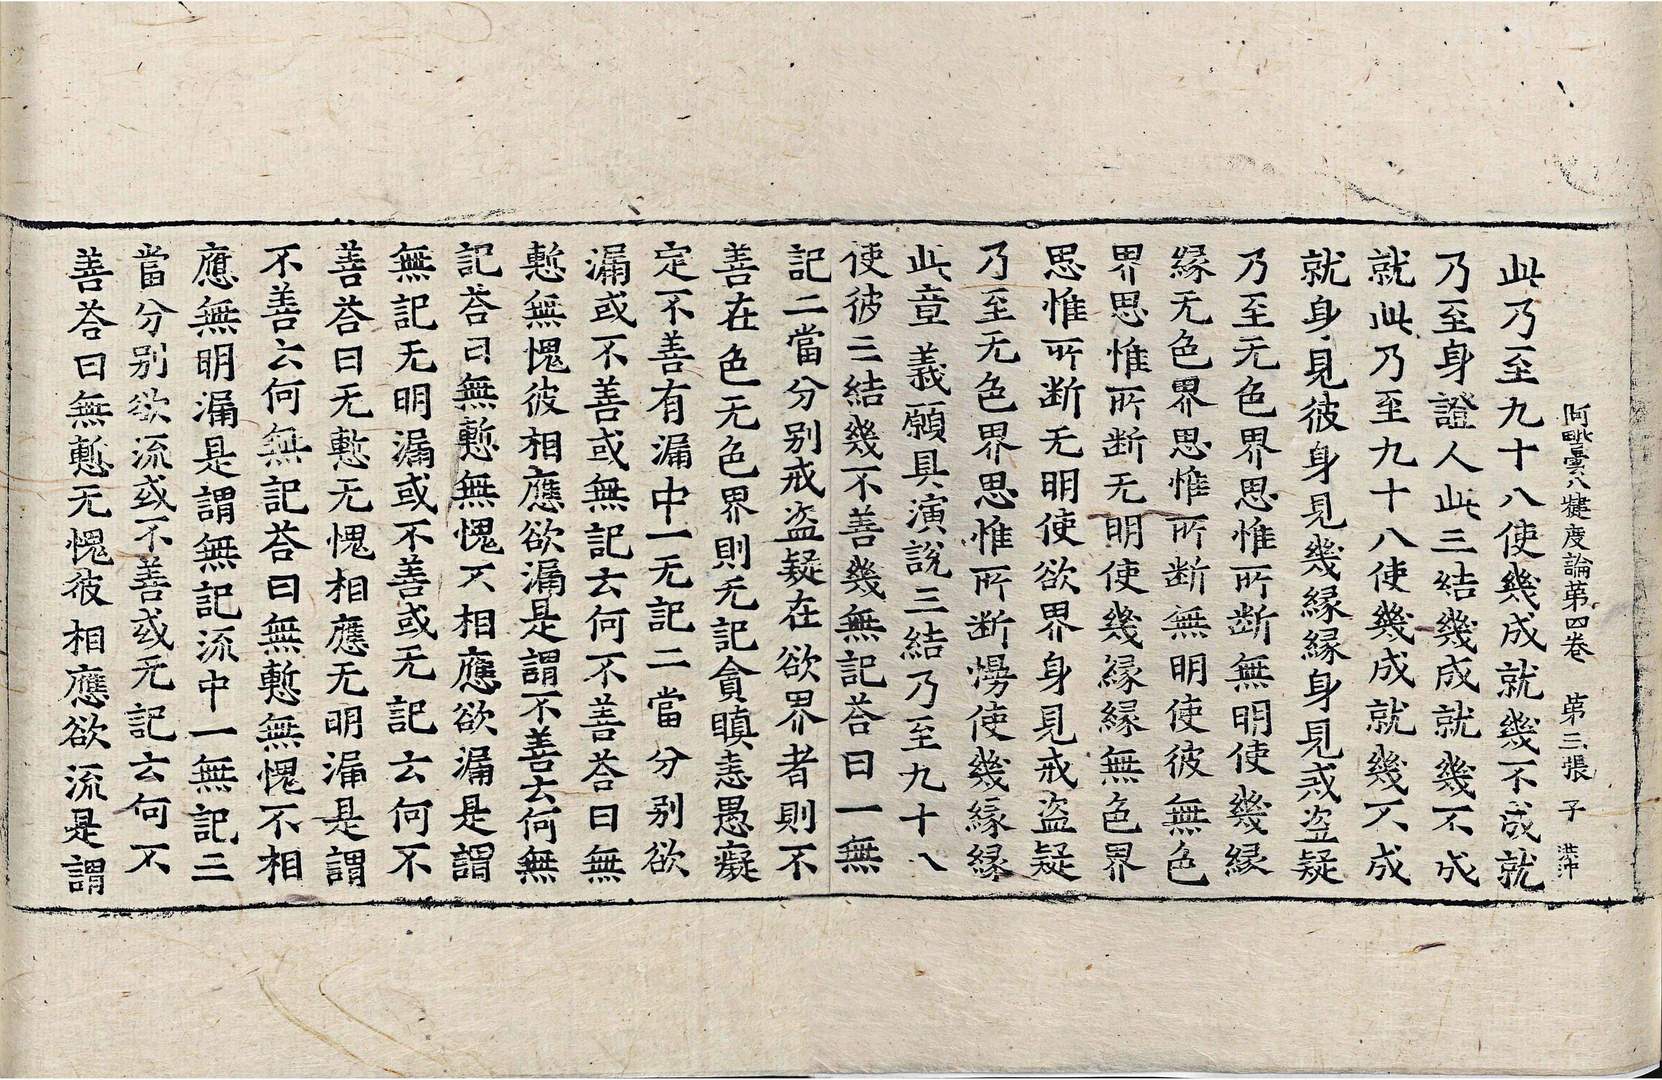 阿毗曇八犍度論第四卷 第三張 子
此乃至九十八使幾成就幾不成就
乃至身證人此三結幾成就幾不成
就此乃至九十八使幾成就幾不成
就身見彼身見幾緣緣身見戒盜疑
乃至无色界思惟所斷無明使幾緣
緣无色界思惟所斷無明使彼無色
界思惟所斷无明使幾緣緣無色界
思惟所斷无明使欲界身見戒盜疑
乃至无色界思惟所斷慢使幾緣緣
此章義願具演說三結乃至九十八
使彼三結幾不善幾無記荅曰一無
記二當分別戒盜疑在欲界者則不
善在色无色界則无記貪瞋恚愚癡
定不善有漏中一无記二當分別欲
漏或不善或無記云何不善荅曰無
慙無愧彼相應欲漏是謂不善云何無
記荅曰無慙無愧不相應欲漏是謂
無記无明漏或不善或无記云何不
善荅曰无慙无愧相應无明漏是謂
不善云何無記荅曰無慙無愧不相
應無明漏是謂無記流中一無記三
當分別欲流或不善或无記云何不
善荅曰無慙无愧彼相應欲流是謂